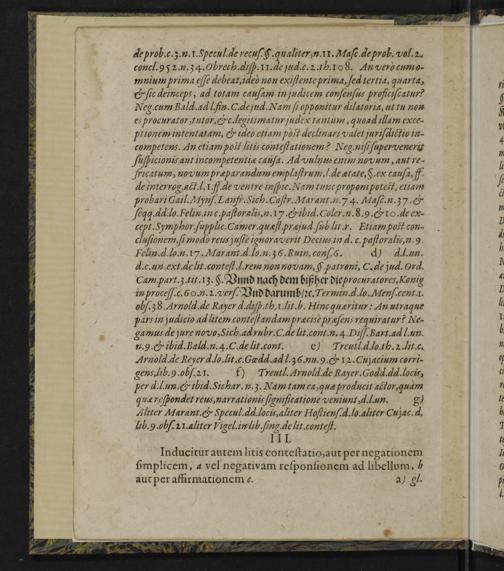 de prob.c.3.n.1. Specul.de recus.§.qualiter, n.11. Masc.de prob. vol.2.
concl.952.n.34. Obrech.disp.11.de jud.c.2.th.108. An verò cum o-
mnium prima esse debeat, ideò non existente prima, sed tertia, quarta,
& sic deinceps, ad totam causam in judicem consensus proficiscatur?
Neg.cum Bald. ad l.fin.C.de jud. Nam si opponitur dilatoria, ut tu non
es procurator, tutor, &c. legitimatur judex tantum, quoad illam exce-
ptionem intentatam, & ideò etiam pòst declinari valet jurisdictio in-
competens. An etiam pòst litis contestationem? Neg. nisi supervenerit
suspicionis aut incompetentia causa. Ad vulnus enim novum, aut re-
fricatum, novum præparandum emplastrum, l. de ætate, §. ex causa, ff.
de interrog. act. l.1. ff. de ventre inspic. Nam tunc proponi potest, etiam
probari Gail. Myns. Lanfr. Sich. Castr. Marant. n.74. Masc.n.37. &
seqq. dd. lo. Felin. in c. pastoralis, n.17. & ibid. Coler. n.8.9. & 10. de ex-
cept. Symphor. supplic. Camer. quæst. præjud. sub lit. r. Etiam pòst con-
clusionem, si modo reus justè ignoraverit Decius in d. c. pastoralis, n.9.
Felin. d. lo. n.17. Marant. d. lo. n.36. Ruin. cons.6. d) d.l.un.
d.c.un.ext.de lit.contest.l.rem non novam, § patroni, C. de jud. Ord.
Cam.part.3.tit.13. §. Vnnd nach dem bißher die procuratores, König
in process. c.60.n.2. vers. Vnd darumb/ ꝛc, Termin.d.lo. Mens.cent.1.
obs.38. Arnold. de Rayer. d. disp. th.1. lit. b. Hinc quæritur: An utraque
pars in judicio ad litem contestandam præcisè præsens requiratur? Ne-
gamus de jure novo, Sich. ad rubr. C. de lit. cont. n.4. Diss. Bart. ad l. un.
n.9. & ibid. Bald. n.4. C. de lit. cont. e) Treutl. d. lo. th.2. lit. c.
Arnold. de Reyer d. lo. lit. c. Gœdd. ad l.36. nu.9. & 12. Cujacium corri-
gens, lib.9. obs.21. f) Treutl. Arnold. de Rayer. Godd. dd. locis,
per d.l.un. & ibid. Sichar. n.3. Nam tam ea, quæ producit actor, quàm
quæ respondet reus, narrationis significatione veniunt, d.l.un. g)
Aliter Marant. & Specul. dd. locis, aliter Hostiens. d. lo. aliter Cujac. d.
lib.9. obs.21. aliter Vigel. in lib. sing. de lit. contest.
III.
Inducitur autem litis contestatio, aut per negationem
simplicem, a vel negativam responsionem ad libellum, b
aut per affirmationem c. a) gl.